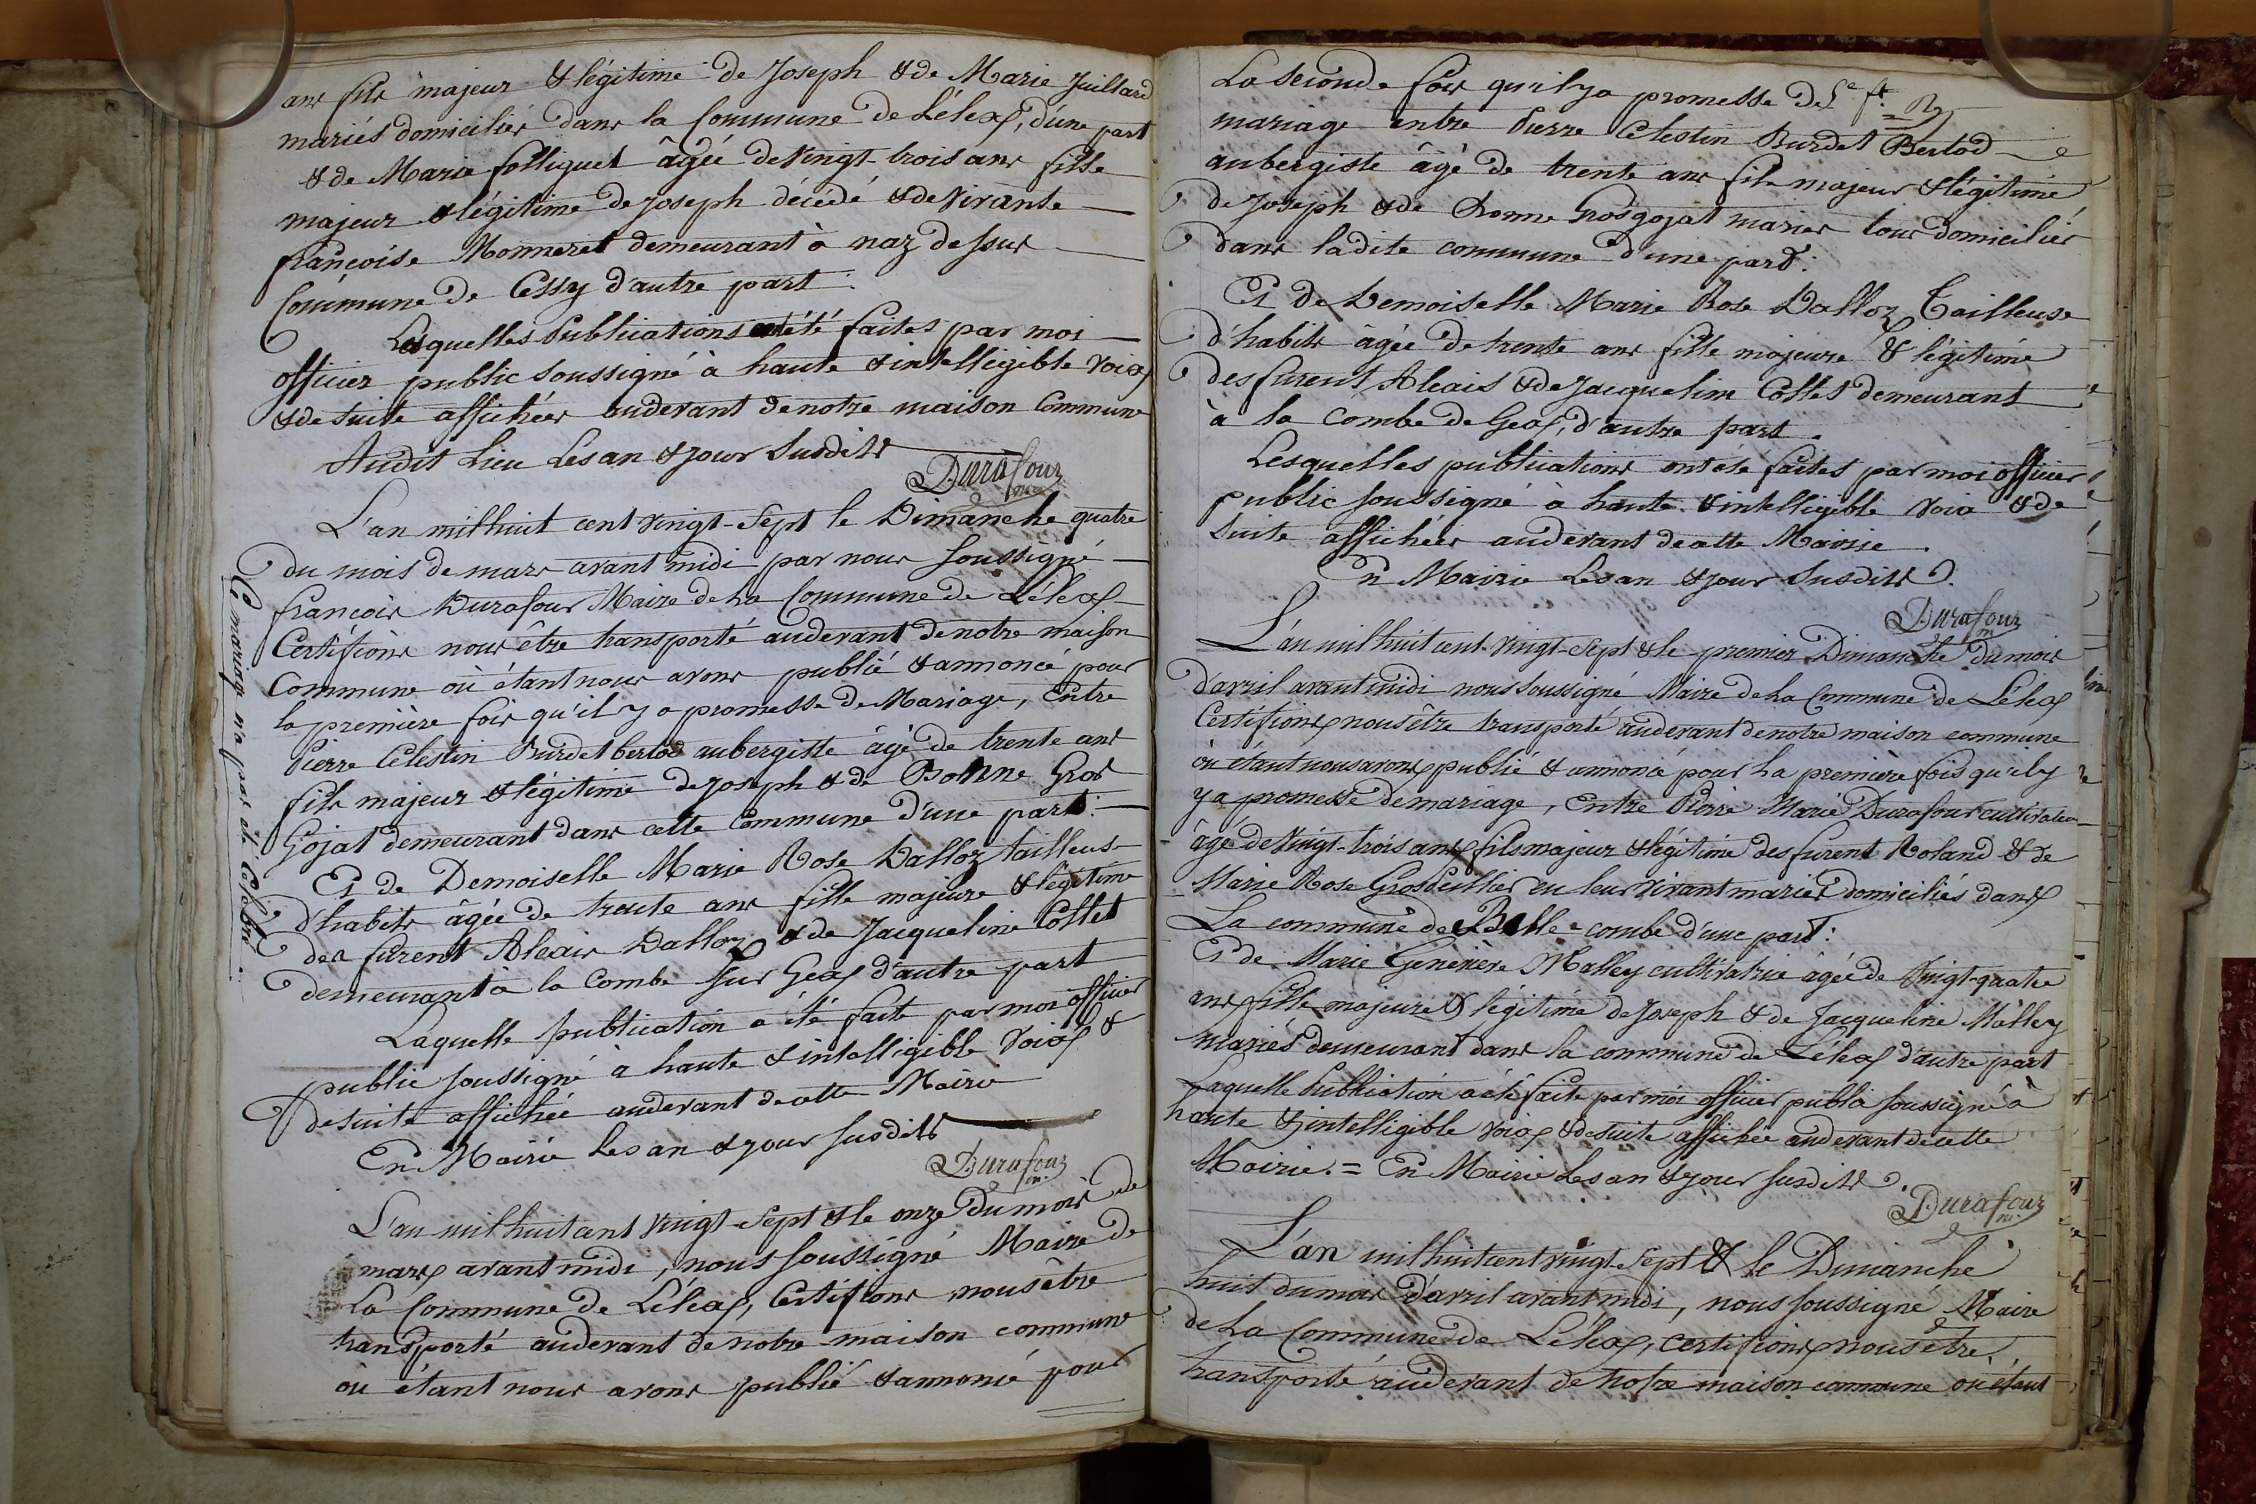 ans fils majeur & légitime de Joseph & de Marie Juillard
mariés domiciliés dans la Commune de Lélex, d'une part
& de Marie folliquet âgée de vingt-trois ans fille
majeur & légitime de Joseph décédé & de vivante
françoise Monneret demeurant à naz dessus
Commune de Cessy d'autre part.
Lesquelles Publications ont été faites par moi
officier public soussigné à haute & intelligible voix
& de suite affichées audevant de notre maison Commune
Audit Lieu Les an & jour Susdits
Durafour
m
L'an mil huit cent vingt-Sept le Dimanche quatre
du mois de mars avant midi par nous Soussigné
françois Durafour Maire de La Commune de Lélex
Certifions nous être transporté audevant de notre maison
Commune où étant nous avons publié & annoncé pour
la première fois qu'il y a promesse de Mariage, Entre
Pierre Célestin Burdet bertod aubergiste âgé de trente ans
fils majeur & légitime de Joseph & de Bonne Gros
Gojat demeurant dans cette Commune d'une part:
Et de Demoiselle Marie Rose Dalloz tailleuse
d'habits âgée de trente ans fille majeure & légitime
des furent Alexis Dalloz & de Jacqueline Collet
demeurant à la Combe Sur Gex d'autre part
Laquelle publication a été faite par moi officier
public soussigné à haute & intelligible Voix &
de suite affichée audevant de cette Mairie
En Mairie Les an & jour susdits
Durafour
m.
Ce mariage n'a pas été Célébré.
L'an mil huit cent vingt-Sept & le onze Du mois de
mars avant midi, nous Soussigné Maire de
La Commune de Lélex, Certifions nous être
transporté audevant de notre maison commune
où étant nous avons publié & annoncé pour
La Seconde fois qu'il y a promesse De
mariage entre Pierre Celestin Burdet Bertod
aubergiste âgé de trente ans fils majeur & légitime
de Joseph & de Bonne Grosgojat mariés tous domiciliés
dans ladite commune d'une part:
Et de Demoiselle Marie Rose Dalloz Tailleuse
d'habits âgée de trente ans fille majeure & légitime
des furent Alexis & de Jacqueline Collet demeurant
à la Combe de Gex, d'autre part.
Lesquelles publications ont été faites par moi officier
public soussigné à haute & intelligible Voix & de
Suite affichées audevant de cette Mairie.
En Mairie Les an & jour Susdits.
Durafour
m
L'an mil huit cent vingt-Sept & le premier Dimanche du mois
d'avril avant midi nous soussigné Maire de La Commune de Lélex
Certifions nous être transporté audevant de notre maison commune
où étant nous avons publié & annoncé pour La première fois qu'il y
y a promesse de mariage, Entre Pierre Marie Durafour cultivateur
âgé de vingt-trois ans fils majeur & légitime des furent Roland & de
Marie Rose en leur vivant mariés domiciliés dans
La commune de Belle-combe d'une part:
Et de Marie Genevieve Malley cultivatrice âgée de Vingt-quatre
ans fille majeure & légitime de Joseph & de Jacqueline Malley
mariés demeurant dans la commune de Lélex d'autre part
Laquelle Publication a été faite par moi officier public soussigné à
haute & intelligible voix & de suite affichée audevant de cette
Mairie. = En Mairie Les an & jour Susdits.
Durafour
m.
L'an mil huit cent vingt-Sept & le Dimanche
huit du mois d'avril avant midi, nous soussigné Maire
de La Commune de Lélex, certifions nous être
transporté audevant de notre maison commune où étant